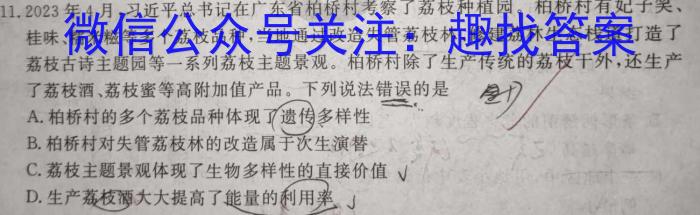 11.2023年4月,习近平总书记在广东省柏桥村考察了荔枝种植园。柏桥村有妃子笑、
桂味、多个荔枝品种,当地通过改造失管荔枝林,打造了
微信公众号关注:趣找答案
荔枝古诗主题园等一系列荔枝主题景观。柏桥村除了生产传统的荔枝干外,还生产
了荔枝酒、荔枝蜜等高附加值产品。下列说法错误的是
A.柏桥村的多个荔枝品种体现了遗传多样性
B.柏桥村对失管荔枝林的改造属于次生演替
C.荔枝主题景观体现了生物多样性的直接价值
D.生产荔枝酒大大提高了能量的利用率